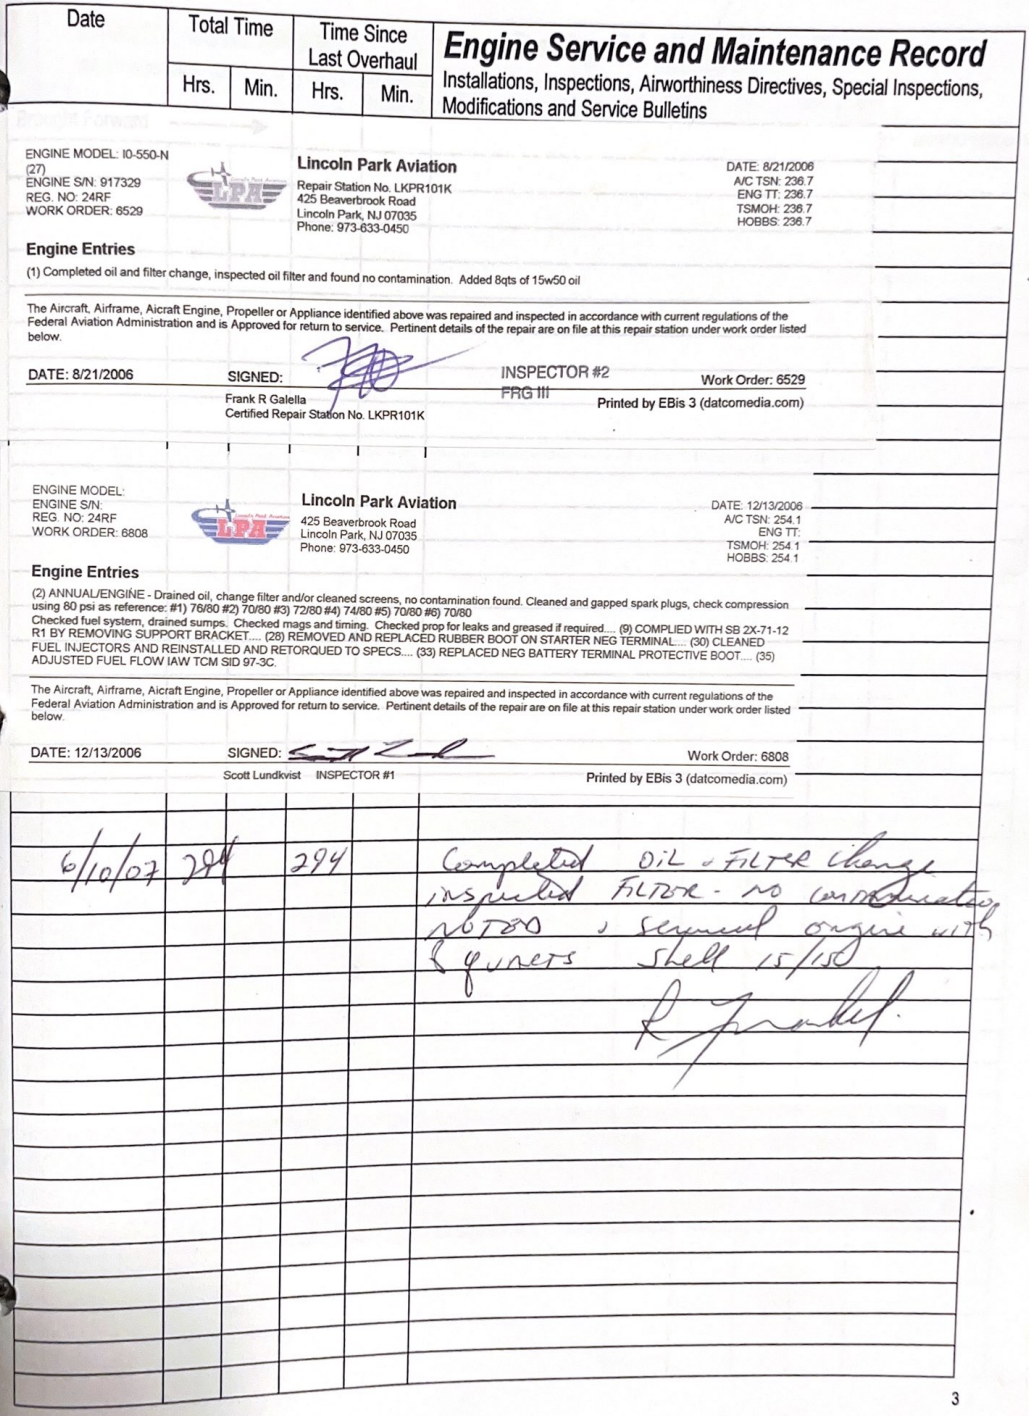 Date
Total Time
Time Since
Last Overhaul
Hrs.
Min.
Hrs.
Min.
Engine Service and Maintenance Record
Installations, Inspections, Airworthiness Directives, Special Inspections,
Modifications and Service Bulletins
Brought Forward
ENGINE MODEL: IO-550-N
(27)
ENGINE S/N: 917329
REG. NO: 24RF
WORK ORDER: 6529
LPA
Lincoln Park Aviation
Repair Station No. LKPR101K
425 Beaverbrook Road
Lincoln Park, NJ 07035
Phone: 973-633-0450
DATE: 8/21/2006
A/C TSN: 236.7
ENG TT: 236.7
TSMOH: 236.7
HOBBS: 236.7
Engine Entries
(1) Completed oil and filter change, inspected oil filter and found no contamination. Added 8qts of 15w50 oil
The Aircraft, Airframe, Aicraft Engine, Propeller or Appliance identified above was repaired and inspected in accordance with current regulations of the
Federal Aviation Administration and is Approved for return to service. Pertinent details of the repair are on file at this repair station under work order listed
below.
DATE: 8/21/2006
SIGNED:
INSPECTOR #2
FRG III
Work Order: 6529
Frank R Galella
Certified Repair Station No. LKPR101K
Printed by EBis 3 (datcomedia.com)
ENGINE MODEL:
ENGINE S/N:
REG. NO: 24RF
WORK ORDER: 6808
Lincoln Park Aviation
LPA
Lincoln Park Aviation
425 Beaverbrook Road
Lincoln Park, NJ 07035
Phone: 973-633-0450
DATE: 12/13/2006
A/C TSN: 254.1
ENG TT:
TSMOH: 254.1
HOBBS: 254.1
Engine Entries
(2) ANNUAL/ENGINE - Drained oil, change filter and/or cleaned screens, no contamination found. Cleaned and gapped spark plugs, check compression
using 80 psi as reference: #1) 76/80 #2) 70/80 #3) 72/80 #4) 74/80 #5) 70/80 #6) 70/80
Checked fuel system, drained sumps. Checked mags and timing. Checked prop for leaks and greased if required.... (9) COMPLIED WITH SB 2X-71-12
R1 BY REMOVING SUPPORT BRACKET.... (28) REMOVED AND REPLACED RUBBER BOOT ON STARTER NEG TERMINAL.... (30) CLEANED
FUEL INJECTORS AND REINSTALLED AND RETORQUED TO SPECS.... (33) REPLACED NEG BATTERY TERMINAL PROTECTIVE BOOT.... (35)
ADJUSTED FUEL FLOW IAW TCM SID 97-3C.
The Aircraft, Airframe, Aicraft Engine, Propeller or Appliance identified above was repaired and inspected in accordance with current regulations of the
Federal Aviation Administration and is Approved for return to service. Pertinent details of the repair are on file at this repair station under work order listed
below.
DATE: 12/13/2006
SIGNED:
Work Order: 6808
Scott Lundkvist INSPECTOR #1
Printed by EBis 3 (datcomedia.com)
6/10/07 294 294 Completed OIL & FILTER change
inspected FILTER - NO contamination
NOTED, serviced engine with
8 quarts shell 15/150
3